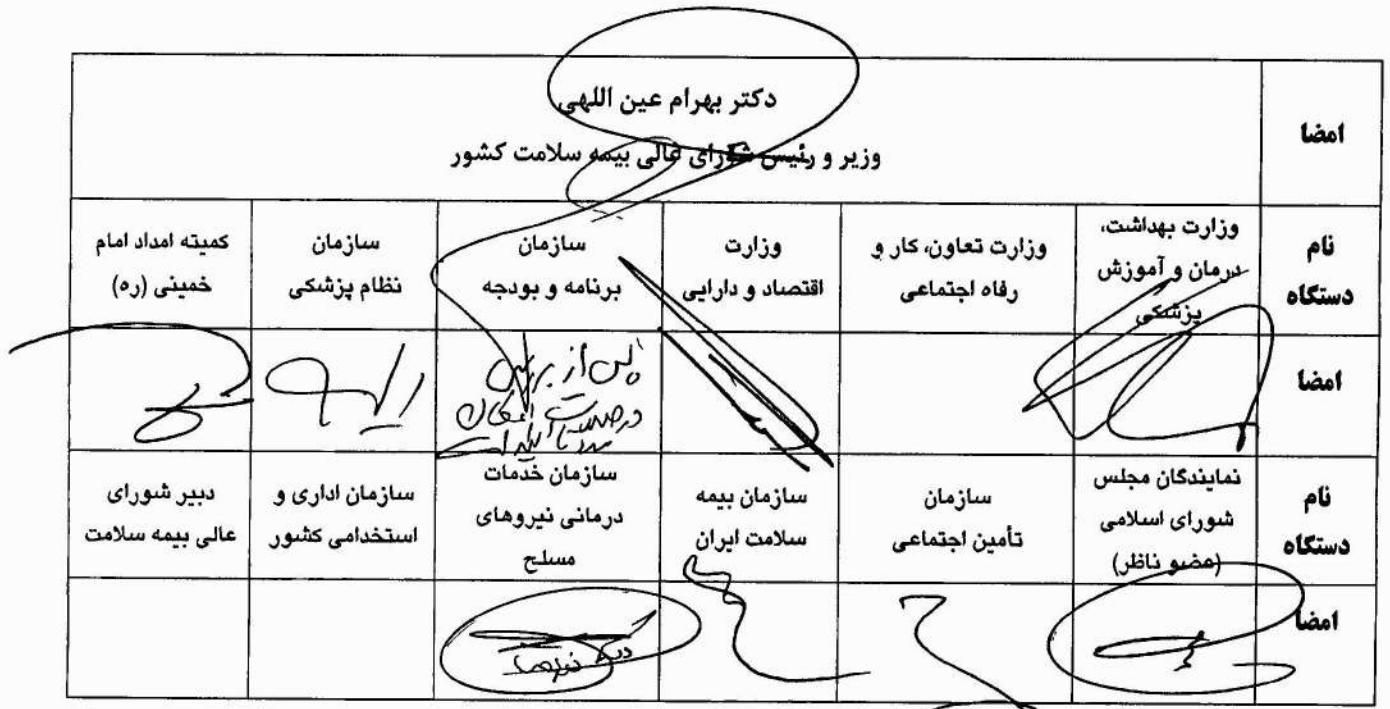 امضا
دکتر بهرام عین اللهی
وزیر و رئیس شورای عالی بیمه سلامت کشور
نام
دستگاه
وزارت بهداشت،
درمان و آموزش
پزشکی
وزارت تعاون، کار و
رفاه اجتماعی
وزارت
اقتصاد و دارایی
سازمان
برنامه و بودجه
سازمان
نظام پزشکی
کمیته امداد امام
خمینی (ره)
امضا
پس از بررسی
در صورت امکان
نام
دستگاه
نمایندگان مجلس
شورای اسلامی
(عضو ناظر)
سازمان
تأمین اجتماعی
سازمان بیمه
سلامت ایران
سازمان خدمات
درمانی نیروهای
مسلح
سازمان اداری و
استخدامی کشور
دبیر شورای
عالی بیمه سلامت
امضا